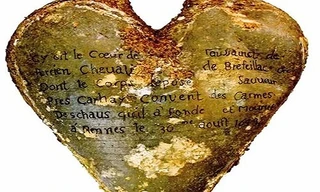 Cy est le Cœur de toussainct de
Perrien Chevali de Brefeillac
Dont le Corps repose a Sauveur
Pres Carhay Convent des Carmes
Deschaus quil a fonde et mourut
a Rennes le 30 aoust